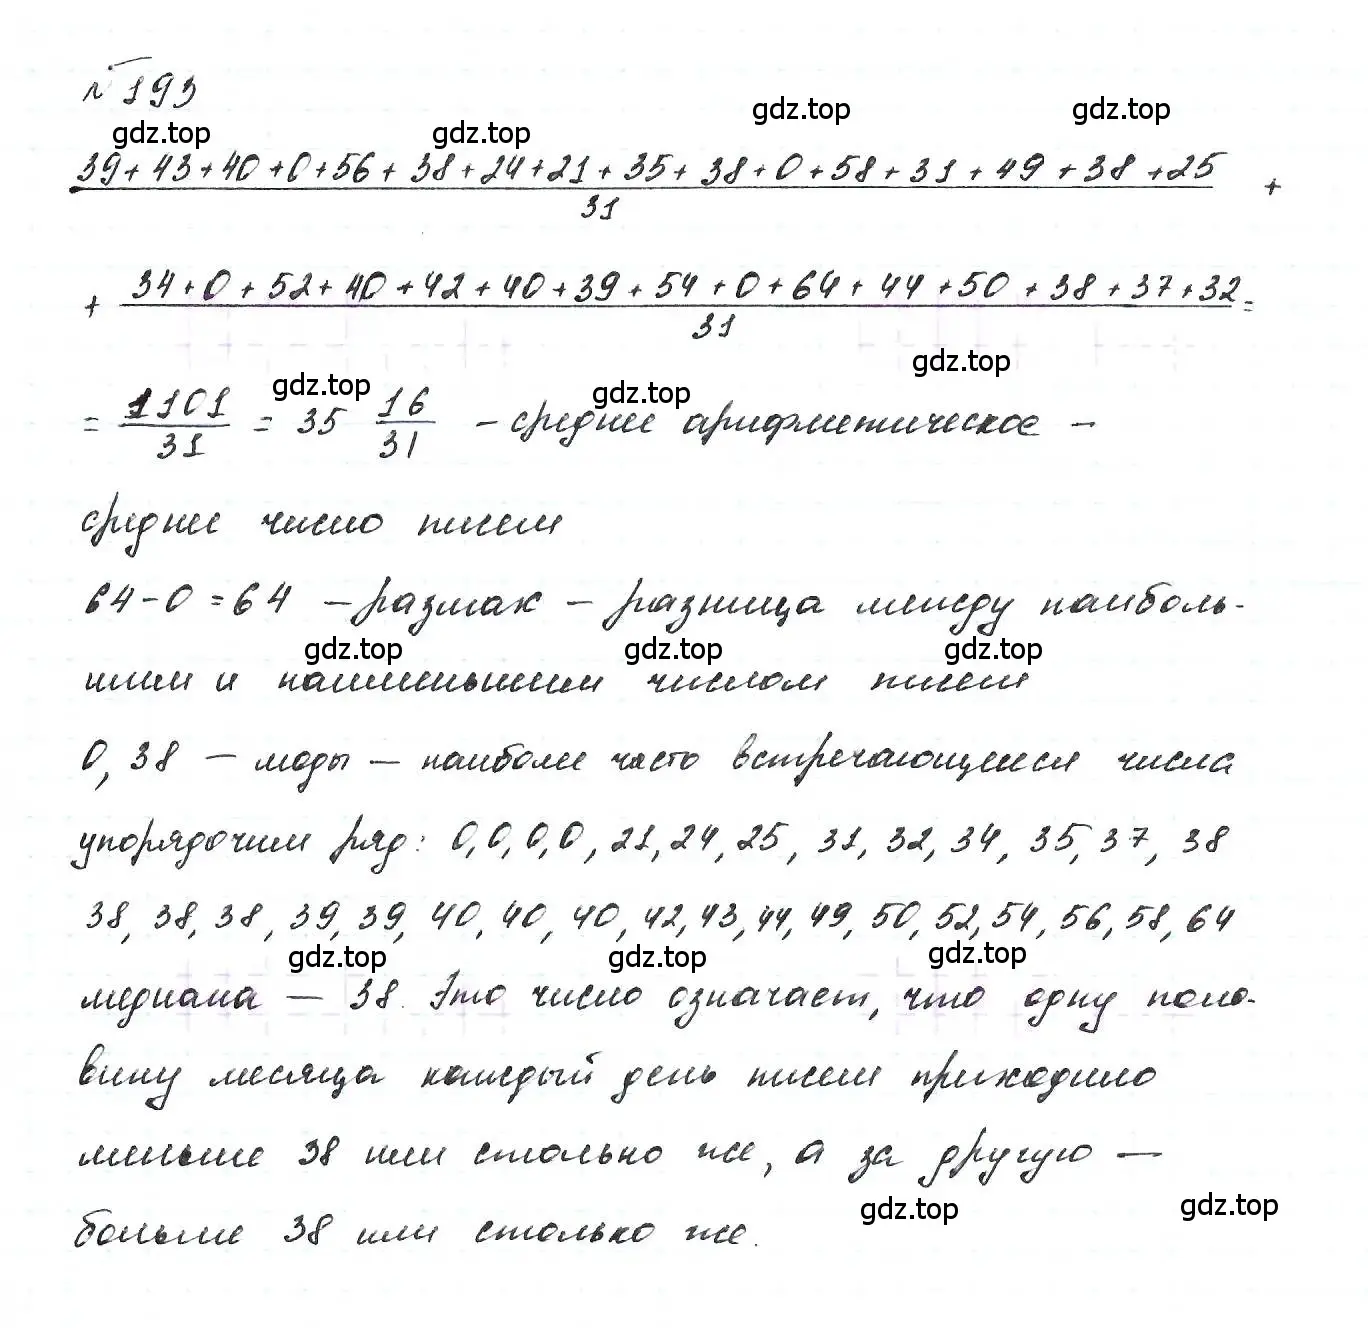 № 193
gdz.top gdz.top gdz.top gdz.top
39+43+40+0+56+38+24+21+35+38+0+58+31+49+38+25 +
31
+ 34+0+52+40+42+40+39+54+0+64+44+50+38+37+32 =
31
gdz.top gdz.top gdz.top
= 1101/31 = 35 16/31 - среднее арифметическое -
среднее число писем
64-0=64 - размах - разница между наиболь-
gdz.top gdz.top gdz.top
шим и наименьшим числом писем
0, 38 - моды - наиболее часто встречающиеся числа
упорядочим ряд: 0,0,0,0,21,24,25, 31, 32, 34, 35, 37, 38
38, 38, 38, 39, 39, 40, 40, 40, 42, 43, 44, 49, 50, 52, 54, 56, 58, 64
gdz.top gdz.top gdz.top
медиана - 38. Это число означает, что одну поло-
вину месяца каждый день писем приходило
меньше 38 или столько же, а за другую -
gdz.top gdz.top
больше 38 или столько же.